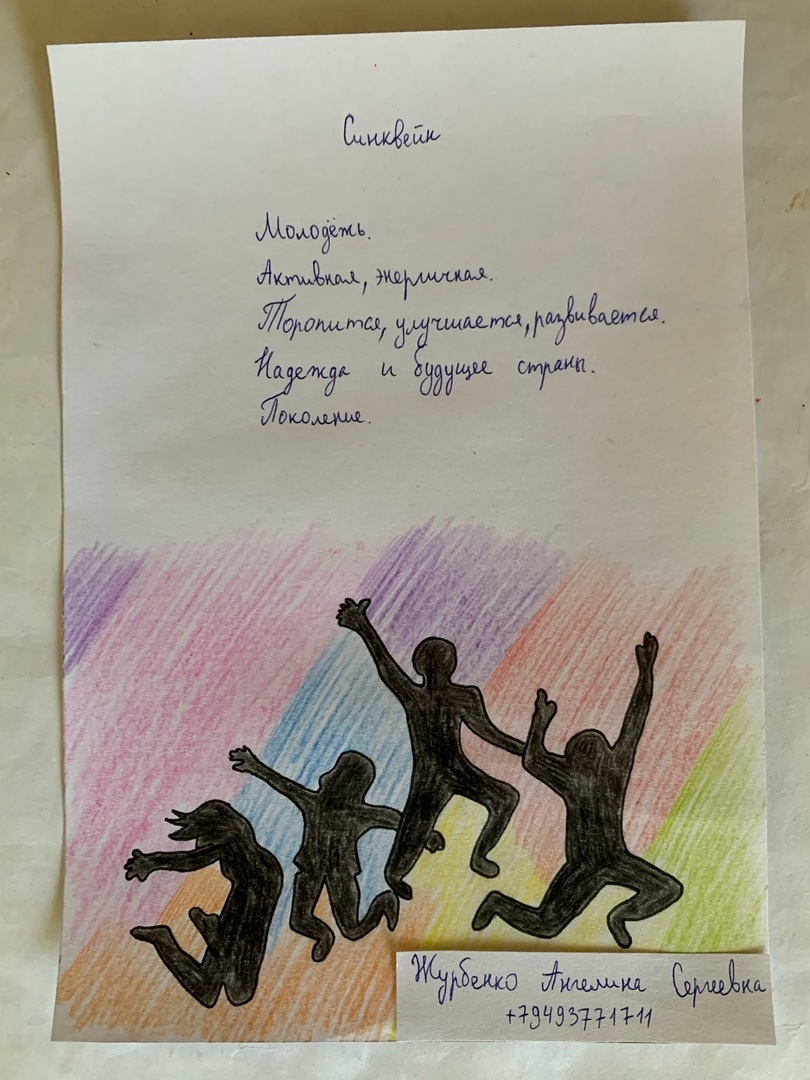 Синквейн
Молодёжь.
Активная, энергичная.
Торопится, улучшается, развивается.
Надежда и будущее страны.
Поколение.
Журбенко Ангелина Сергеевна
+79493771711